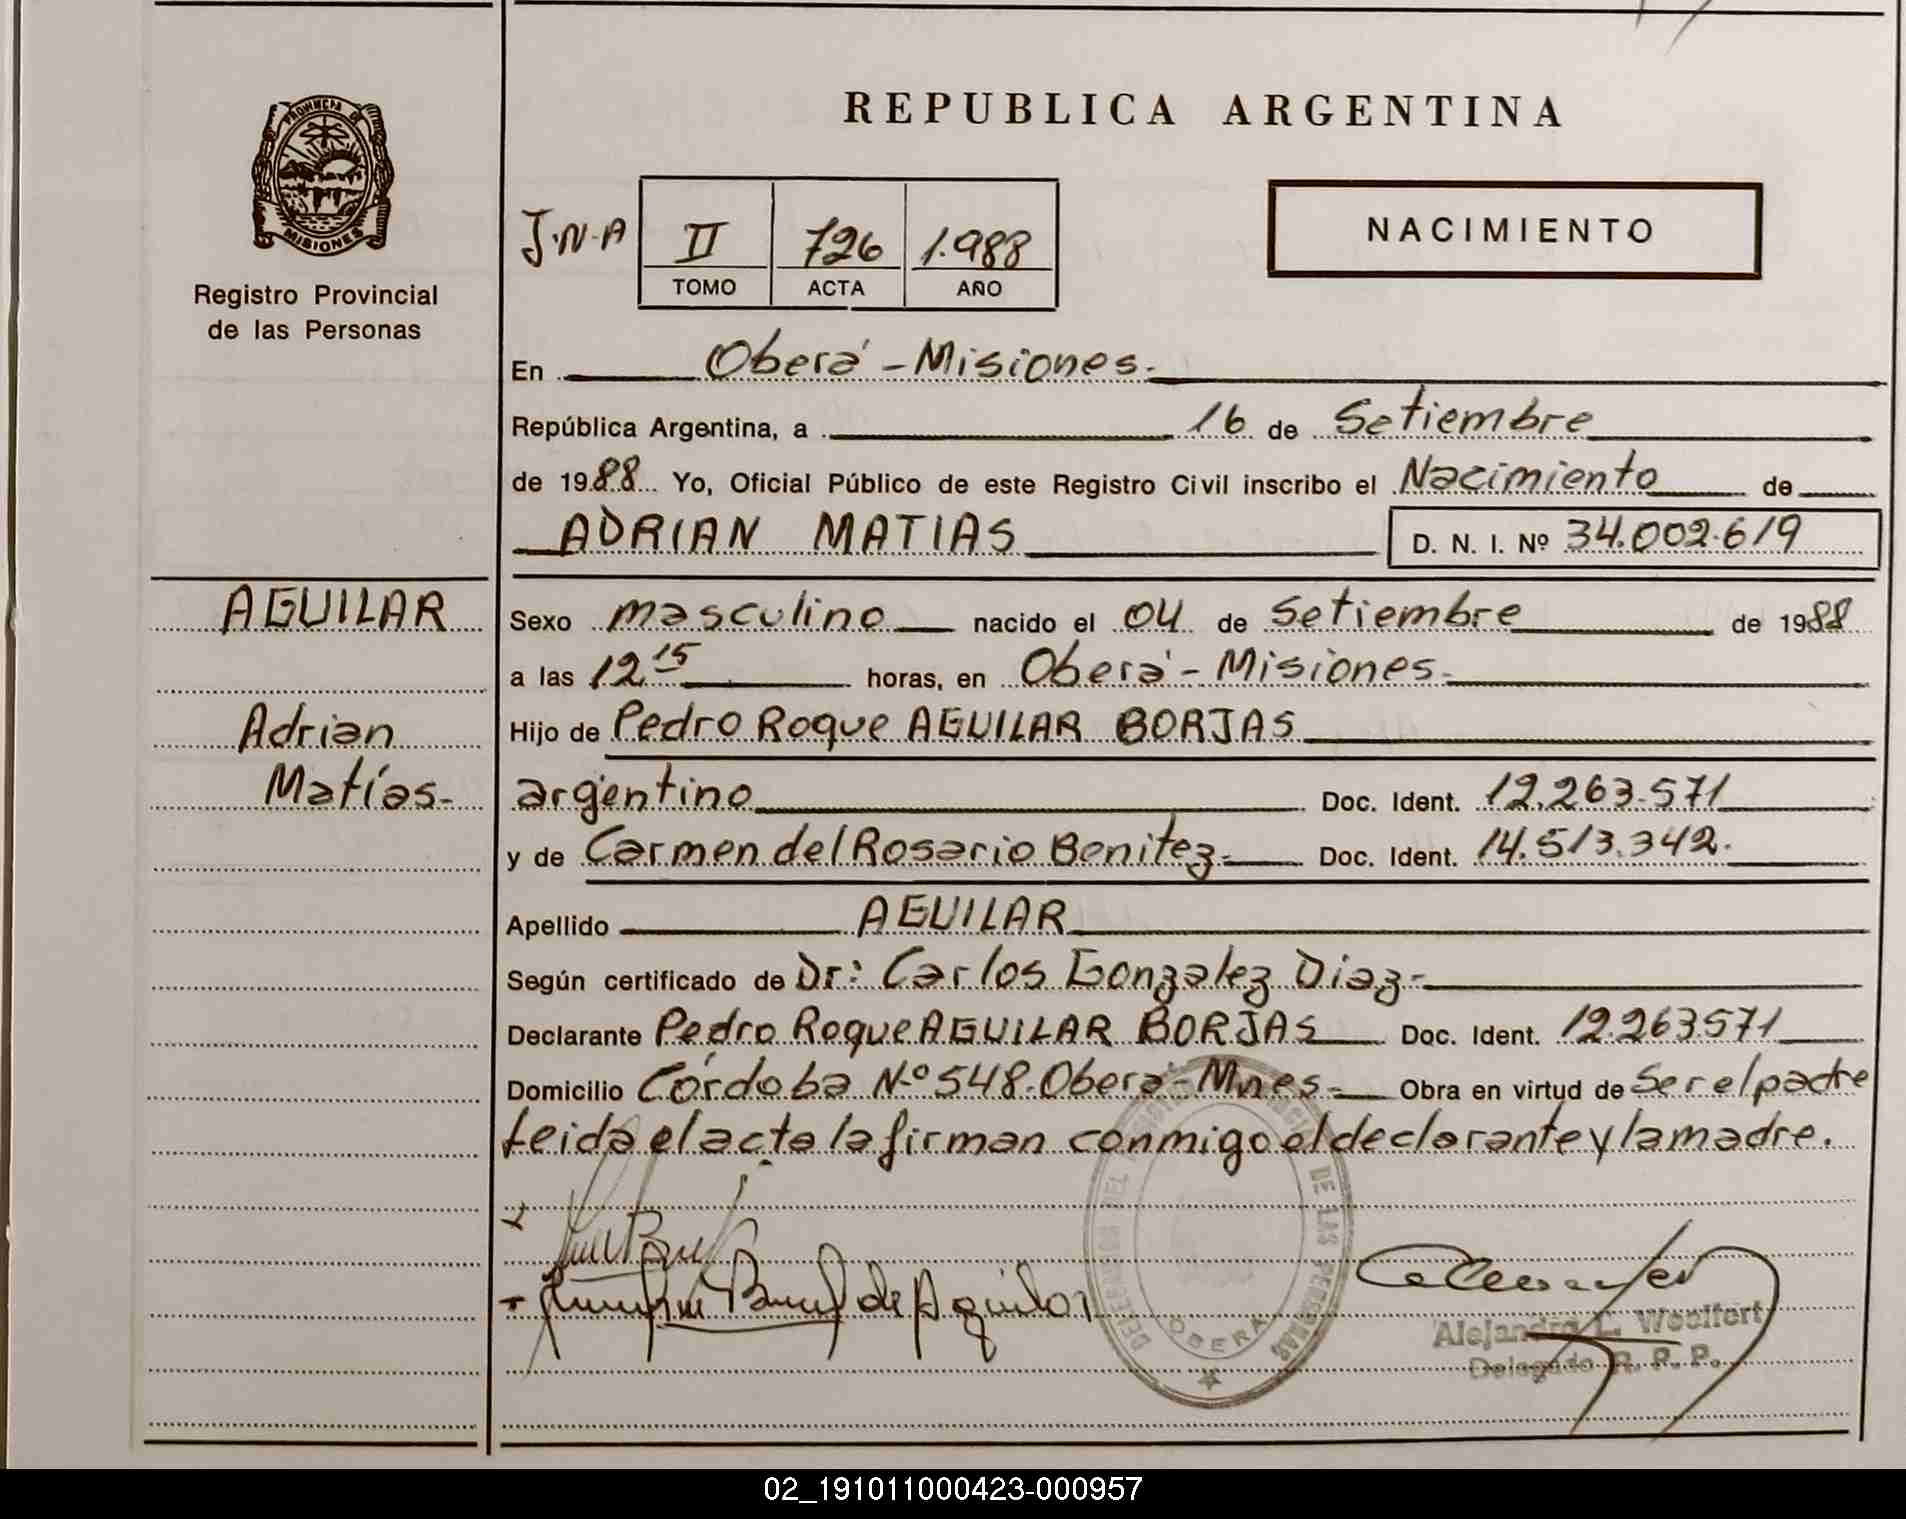 REPUBLICA ARGENTINA
PROVINCIA DE
MISIONES
Registro Provincial
de las Personas
J.N.A
II 726 1.988
TOMO ACTA AÑO
NACIMIENTO
En Oberá - Misiones.
República Argentina, a 16 de Setiembre
de 1988 Yo, Oficial Público de este Registro Civil inscribo el Nacimiento de
ADRIAN MATIAS D. N. I. Nº 34.002.619
AGUILAR
Adrian
Matías-
Sexo masculino nacido el 04 de Setiembre de 1988
a las 12 15 horas, en Oberá - Misiones-
Hijo de Pedro Roque AGUILAR BORJAS
argentino Doc. Ident. 12.263.571
y de Carmen del Rosario Benitez- Doc. Ident. 14.513.342.
Apellido AGUILAR
Según certificado de Dr: Carlos Gonzalez Diaz-
Declarante Pedro Roque AGUILAR BORJAS Doc. Ident. 12.263.571
Domicilio Córdoba N.º 548-Oberá-Mnes- Obra en virtud de Ser el padre
Leida el acta la firman conmigo el declarante y la madre.
de Aguilar
DELEGACION DEL DE LAS PERSONAS
OBERA
Alejandro L. Woelfert
Delegado R. P. P.
02_191011000423-000957